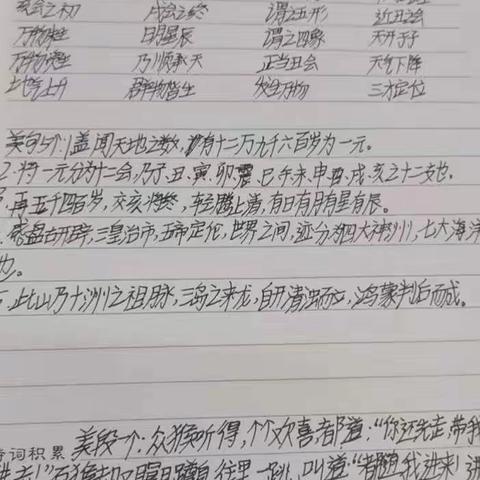 之初 成会之终 谓之五形 近丑之会
万物 日月星辰 谓之四象 天开于子
万物 乃顺承天 正当丑会 天气下降
地气上升 群物皆生 发生万物 三才定位
美句5个:1.盖闻天地之数,有十二万九千六百岁为一元。
2.将一元分为十二会,乃子、丑、寅、卯、巳、午、未、申、酉、戌、亥之十二支也。
再五千四百岁,交亥将终,轻清上腾,有日有月有星有辰。
感盘古开辟,三皇治市,五帝定伦,世界之间,遂分为四大神州,七大海洋
也。
此山乃十洲之祖脉,三岛之来龙,自开清浊而立,鸿蒙判后而成。
词积累 美段一个:众猴听得,个个欢喜,都道:“你还先走,带我
进去!”石猴却又瞑目蹲身,往里一跳,叫道“都随我进来!进